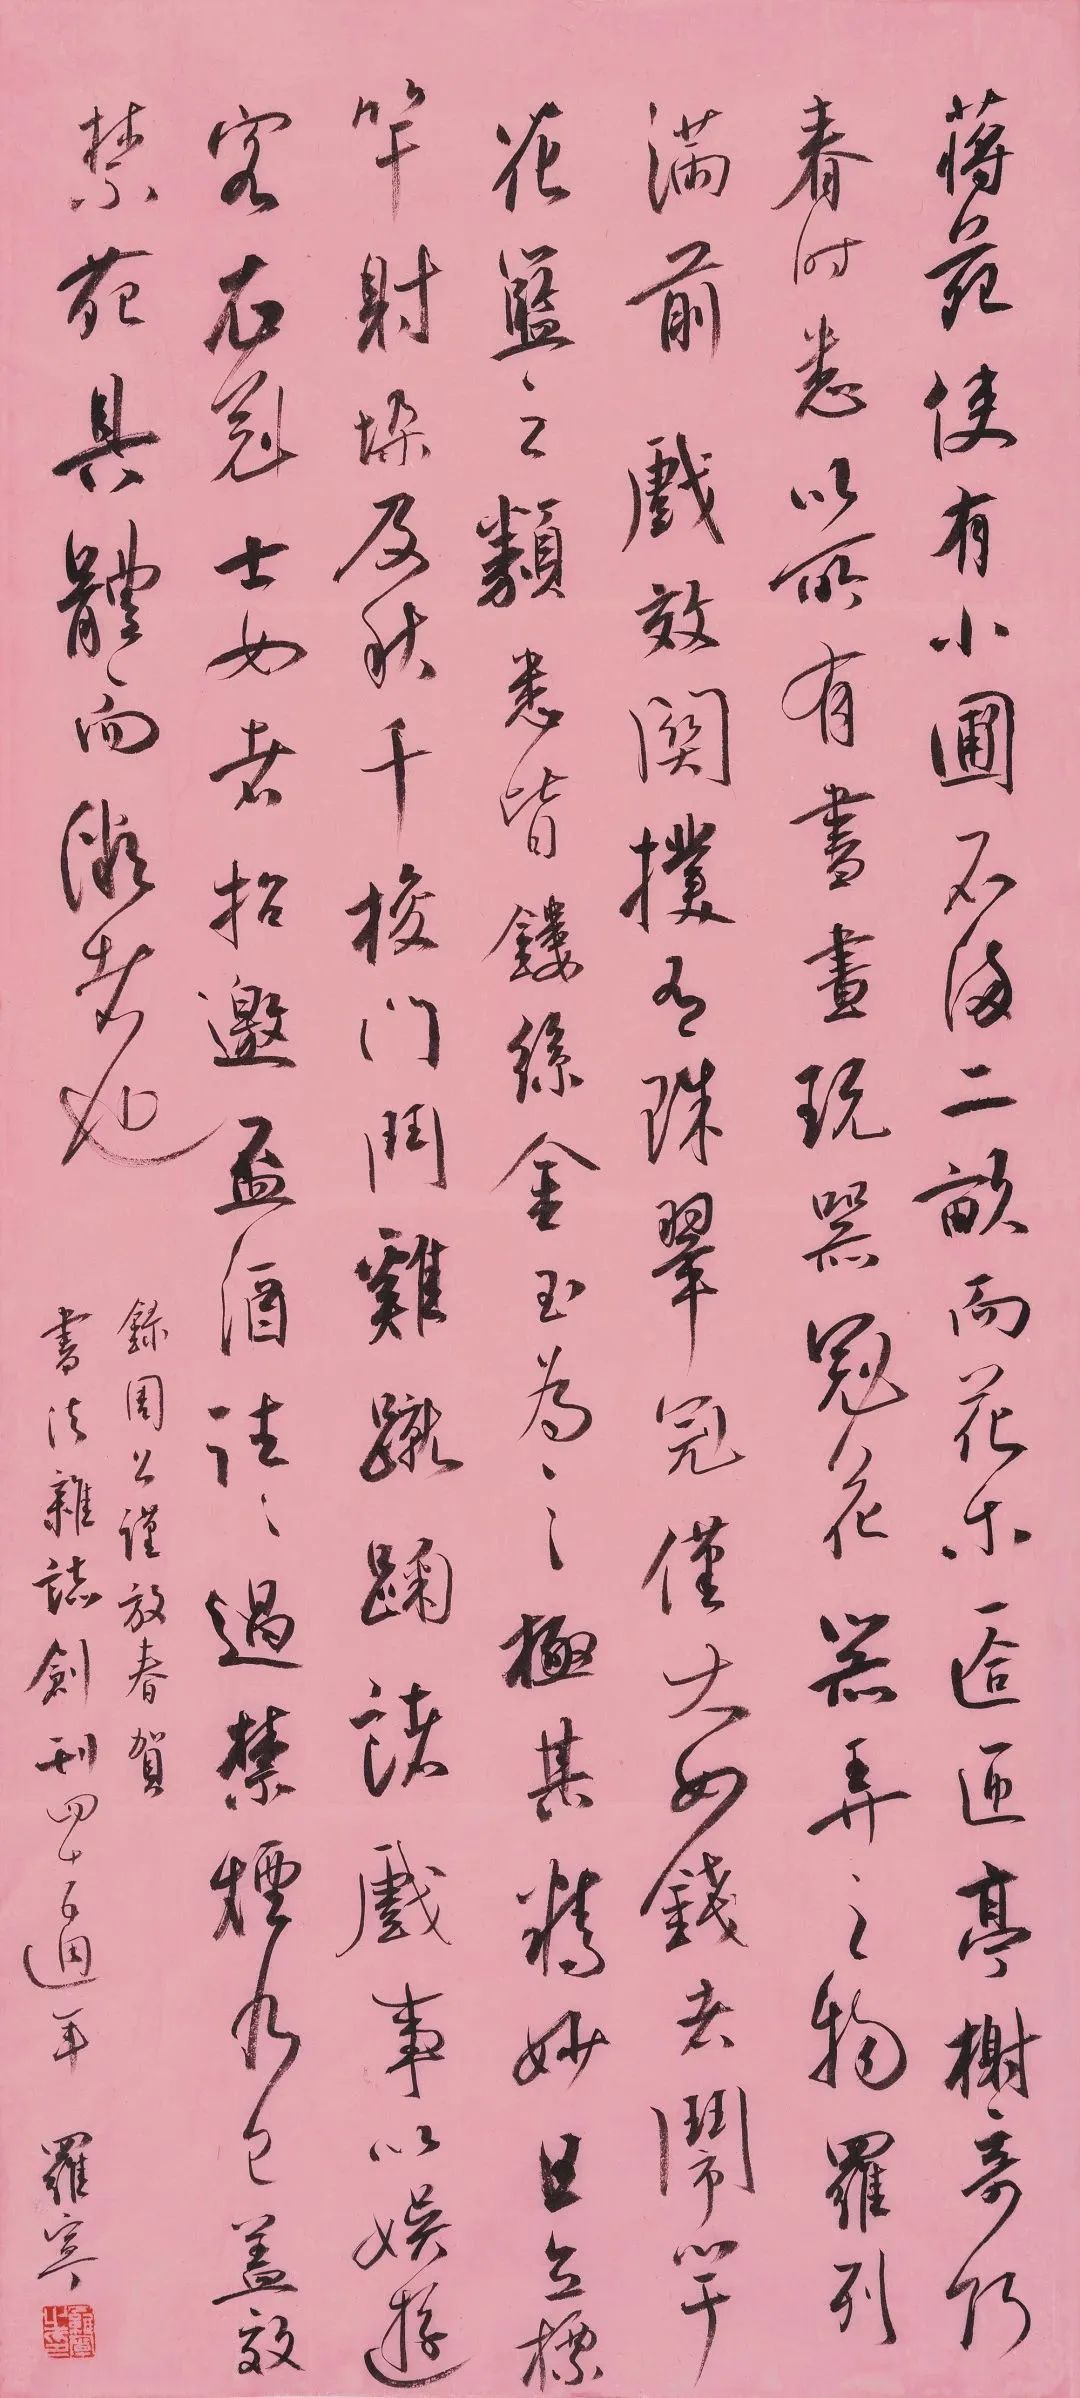 蔣苑使有小圃不滿二畝而花木匼匝亭榭奇巧
春時悉以所有書畫玩器冠花器弄之物羅列
滿前戲效関撲有珠翠冠僅大如錢者鬧竿
花籃之類悉皆鏤絲金玉為之極其精妙且立標
竿射垛及秋千梭门鬥雞蹴踘諸戲事以娛遊
客衣冠士女者招邀盃酒往々過禁煙乃已蓋效
禁苑具體而微者也
錄周公謹放春賀
書法雜誌創刊四十五週年 羅寧